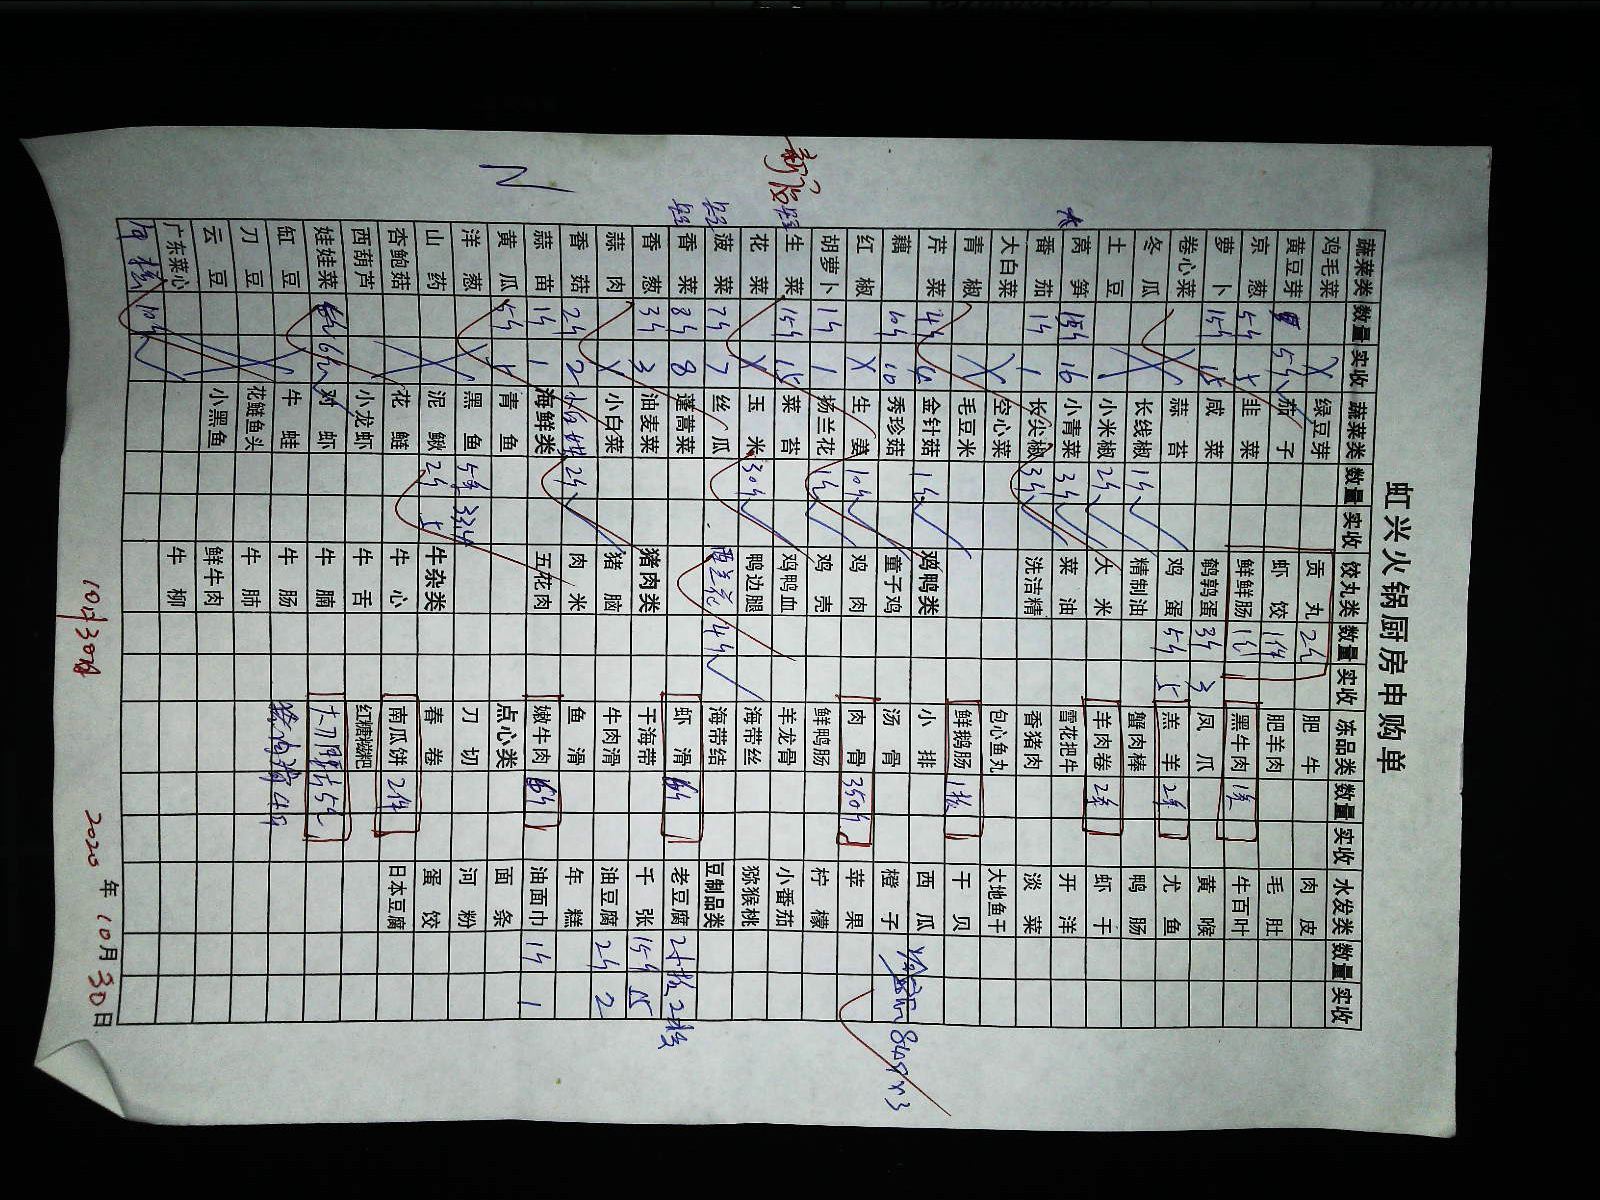 虹兴火锅厨房申购单
蔬菜类 数量 实收 蔬菜类 数量 实收 饺丸类 数量 实收 冻品类 数量 实收 水发类 数量 实收
鸡毛菜 X 绿豆芽 贡丸 2包 肥牛 肉皮
黄豆芽 5斤 茄子 虾饺 1件 肥羊肉 毛肚
京葱 5斤 5 韭菜 鲜鲜肠 1包 黑牛肉 1块 牛百叶
萝卜 15斤 15 咸菜 鹌鹑蛋 3斤 3 凤爪 黄喉
卷心菜 蒜苔 鸡蛋 5斤 5 羔羊 2条 尤鱼
冬瓜 长线椒 1斤 精制油 蟹肉棒 鸭肠
土豆 小米椒 2斤 大米 羊肉卷 2条 虾干
莴笋 15斤 16 小青菜 3斤 菜油 雪花把牛 开洋
番茄 1斤 1 长尖椒 3斤 洗洁精 香猪肉 淡菜
大白菜 空心菜 包心鱼丸 大地鱼干
青椒 X 毛豆米 鲜鹅肠 1板 干贝
芹菜 4斤 4 金针菇 1包 鸡鸭类 小排 西瓜
藕 10斤 10 秀珍菇 童子鸡 汤骨 橙子 849x3
红椒 X 生姜 10斤 鸡肉 肉骨 350斤 苹果
胡萝卜 1斤 1 扬兰花 1斤 鸡壳 鲜鸭肠 柠檬
生菜 15斤 15 菜苔 鸡鸭血 羊龙骨 小番茄
花菜 X 玉米 30斤 鸭边腿 海带丝 猕猴桃
菠菜 7斤 7 丝瓜 西兰花 4斤 海带结 豆制品类
香菜 8斤 8 蓬蒿菜 虾滑 6斤 老豆腐 2板 2板
香葱 3斤 3 油麦菜 猪肉类 干海带 千张 15斤 15
蒜肉 X 小白菜 猪脑 牛肉滑 油豆腐 2斤 2
香菇 2斤 2 2斤 肉米 鱼滑 年糕
蒜苗 1斤 1 海鲜类 五花肉 嫩牛肉 6斤 油面巾 1斤 1
黄瓜 5斤 5 青鱼 点心类 面条
洋葱 黑鱼 5条 33.4 刀切 河粉
山药 泥鳅 2斤 5 牛杂类 春卷 蛋饺
杏鲍菇 花鲢 牛心 南瓜饼 2件 日本豆腐
西葫芦 小龙虾 牛舌 红糖糍粑
娃娃菜 6斤 对虾 牛腩 5包
缸豆 牛蛙 牛肠
刀豆 花鲢鱼头 牛肺
云豆 小黑鱼 鲜牛肉
广东菜心 牛柳
10斤
10月30日
2020年10月30日